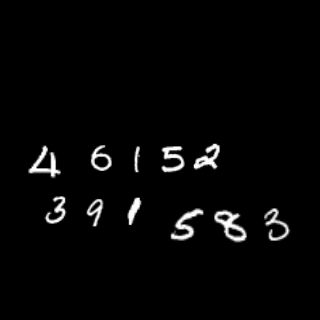 4 6 1 5 2
3 9 1 5 8 3